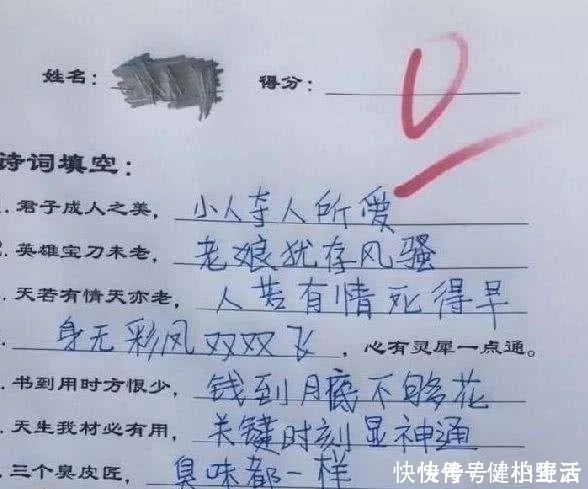 姓名： 得分： 0
诗词填空：
. 君子成人之美，小人夺人所爱
. 英雄宝刀未老，老娘犹存风骚
. 天若有情天亦老，人若有情死得早
. 身无彩风双双飞，心有灵犀一点通。
. 书到用时方恨少，钱到月底不够花
. 天生我材必有用，关键时刻显神通
. 三个臭皮匠，臭味都一样